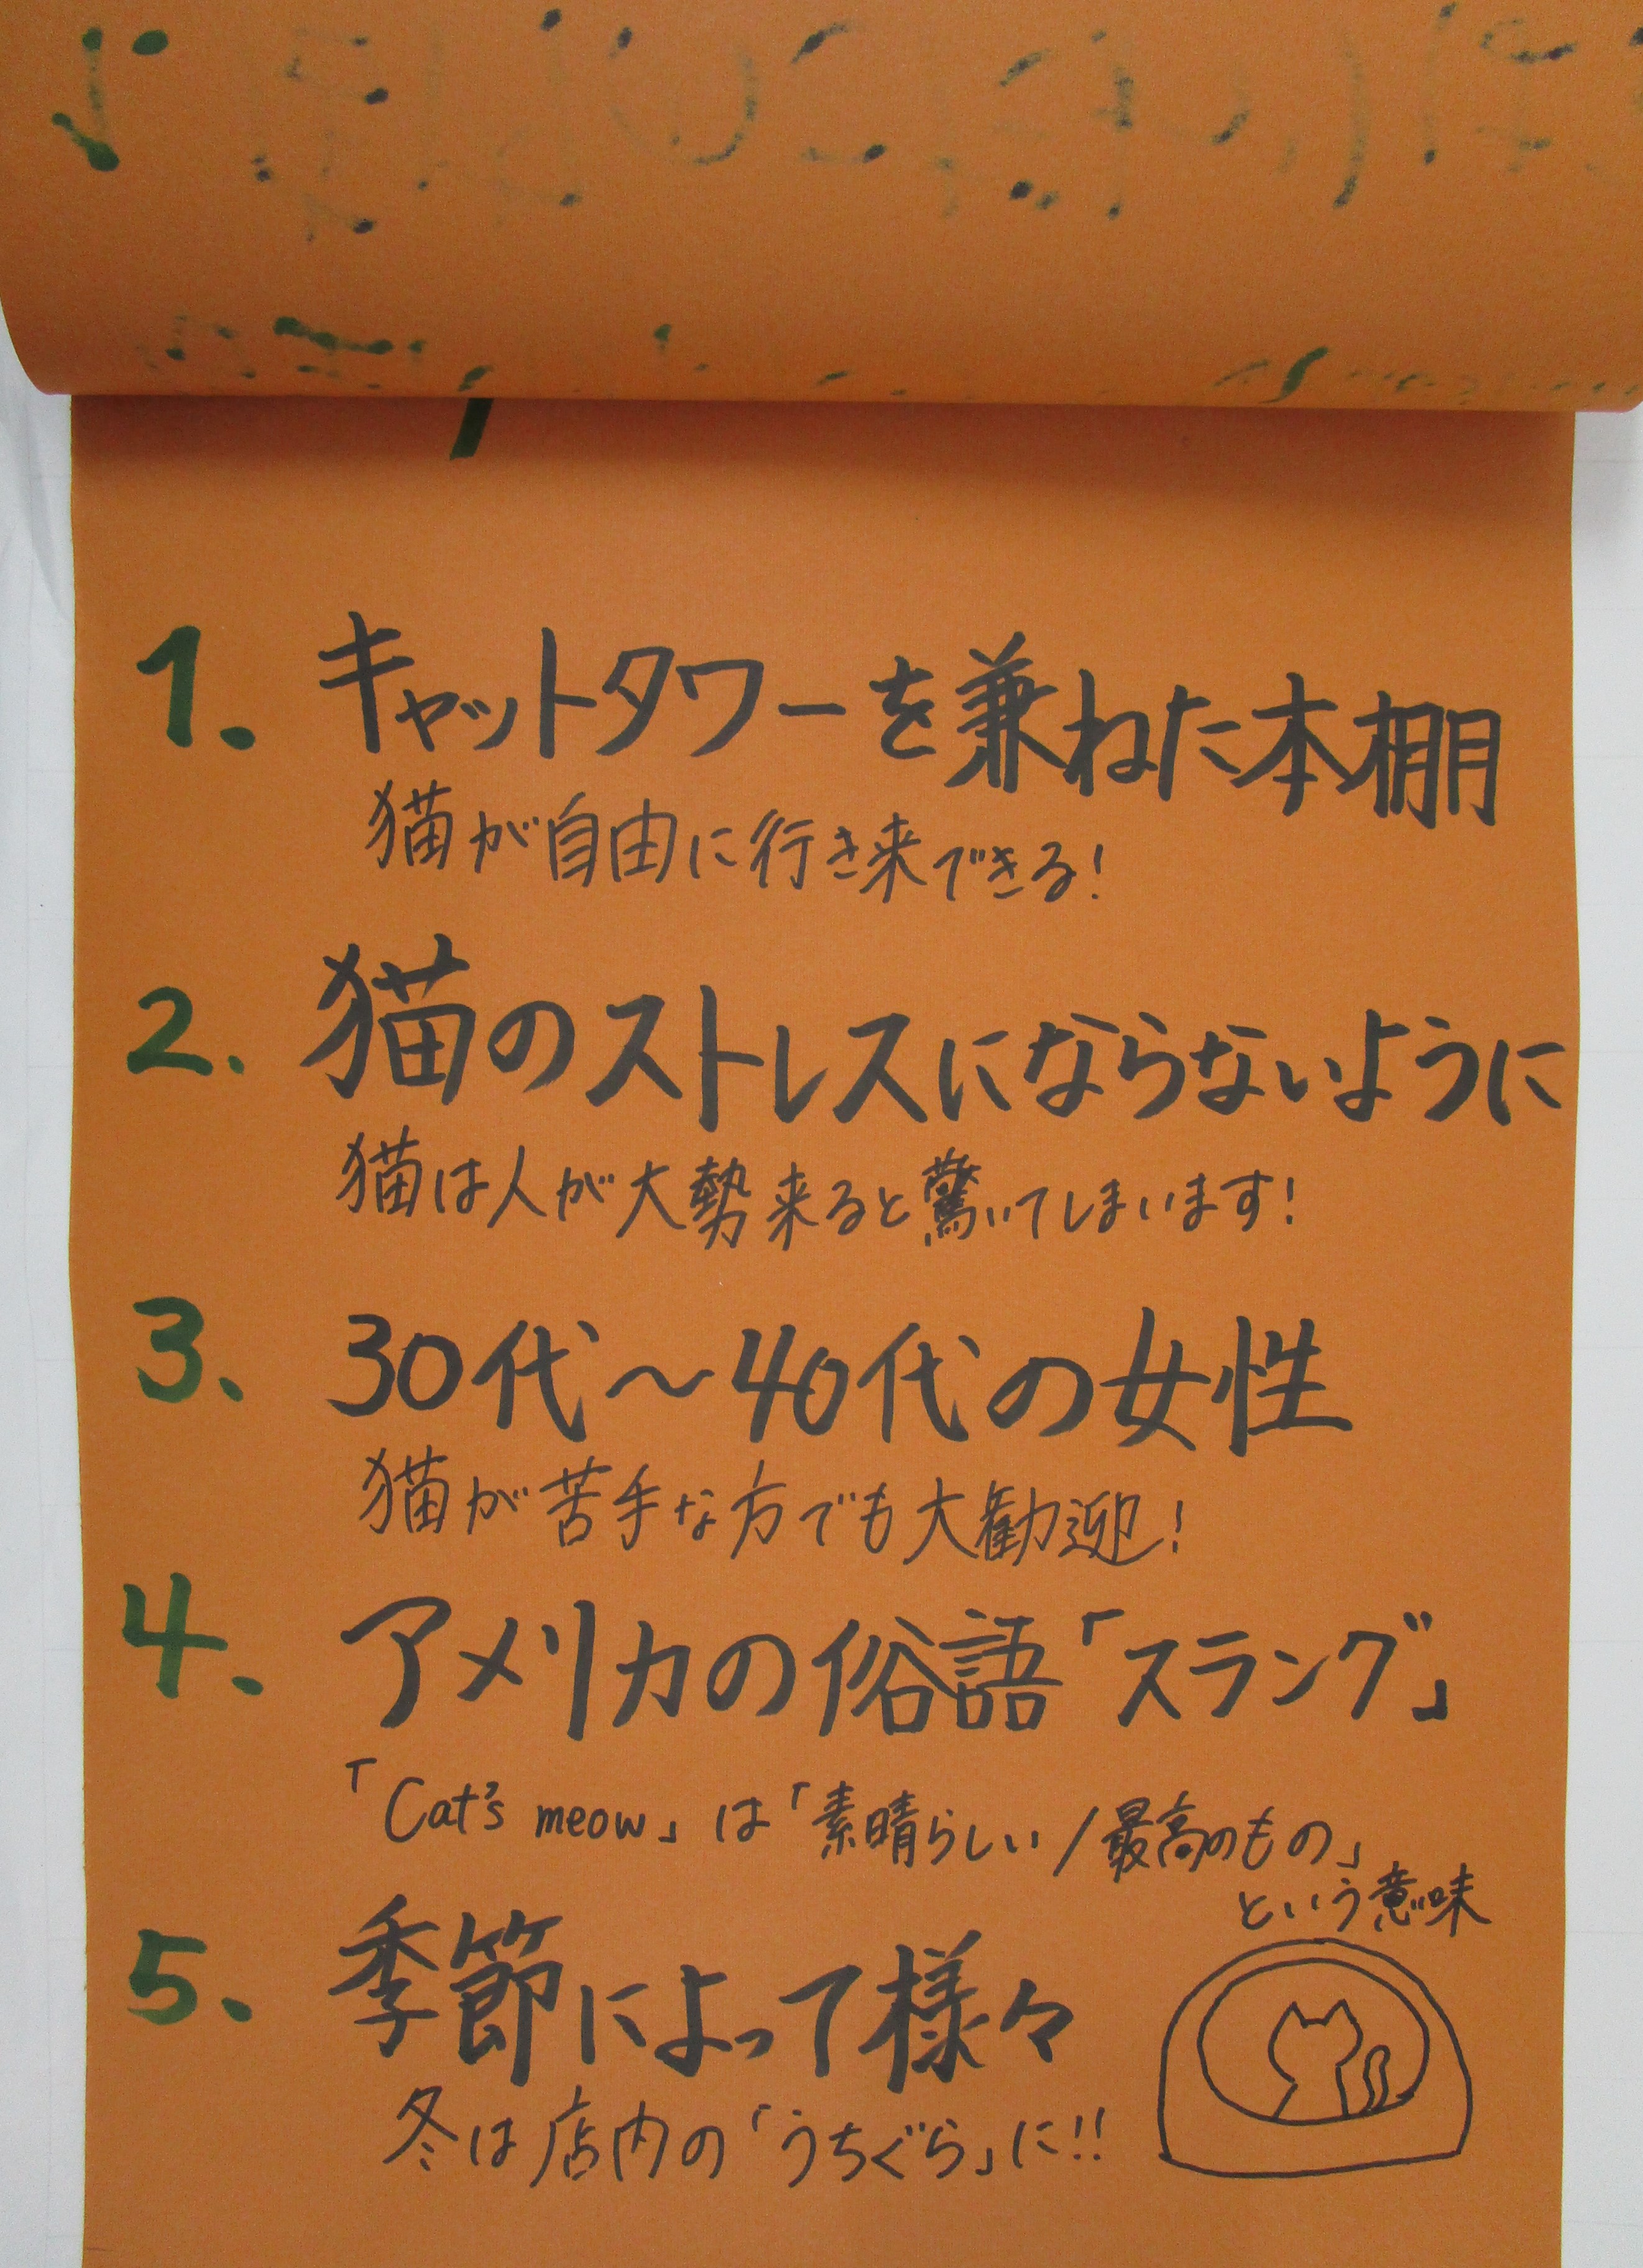 1. キャットタワーを兼ねた本棚
猫が自由に行き来できる!
2. 猫のストレスにならないように
猫は人が大勢来ると驚いてしまいます!
3. 30代～40代の女性
猫が苦手な方でも大勧迎!
4. アメリカの俗語「スラング」
「Cat's meow」は「素晴らしい/最高のもの」
という意味
5. 季節によって様々
冬は店内の「うちぐら」に!!